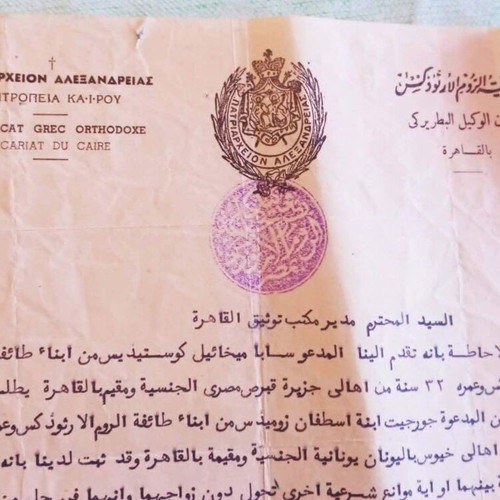 ΡΧΕΙΟΝ ΑΛΕΞΑΝΔΡΕΙΑΣ
ΙΤΡΟΠΕΙΑ ΚΑ·Ι·ΡΟΥ
CAT GREC ORTHODOXE
CARIAT DU CAIRE
ΠΑΤΡΙΑΡΧΕΙΟΝ ΑΛΕΞΑΝΔΡΕΙΑΣ
ية الروم الأرثوذكس
ن الوكيل البطريركى
بالقاهرة
السيد المحترم مدير مكتب توثيق القاهرة
لاحاطة بانه تقدم الينا المدعو سابا ميخائيل كوستيديس من ابناء طائفة
كس وعمره ٣٢ سنة من اهالى جزيرة قبرص مصرى الجنسية ومقيم بالقاهرة يطلب
ن المدعوة جورجيت ابنة اسطفان زوميديس من ابناء طائفة الروم الارثوذكس وعم
اهالى خيوس باليونان يونانية الجنسية ومقيمة بالقاهرة وقد ثبت لدينا بانه
بينهما او اية موانع شرعية اخرى تحول دون زواجهما وانهما فى حل من